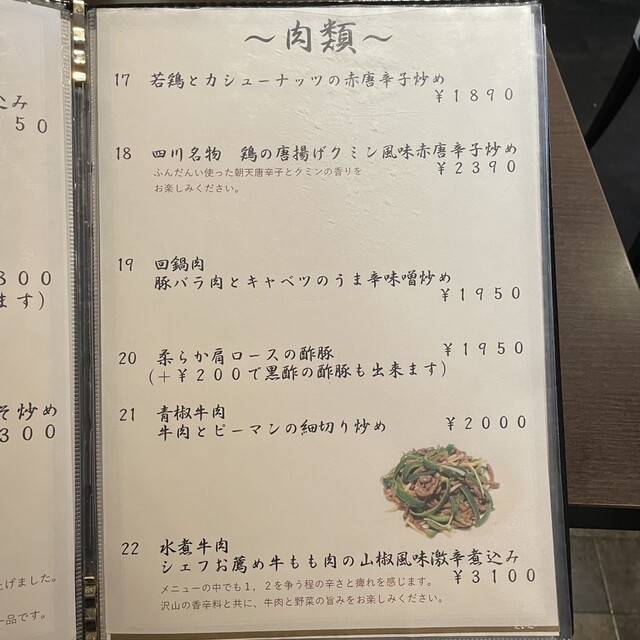 ～肉類～
17 若鶏とカシューナッツの赤唐辛子炒め
￥1890
18 四川名物 鶏の唐揚げクミン風味赤唐辛子炒め
￥2390
ふんだんい使った朝天唐辛子とクミンの香りを
お楽しみください。
19 回鍋肉
豚バラ肉とキャベツのうま辛味噌炒め
￥1950
20 柔らか肩ロースの酢豚 ￥1950
(＋￥200で黒酢の酢豚も出来ます)
21 青椒牛肉
牛肉とピーマンの細切り炒め ￥2000
22 水煮牛肉
シェフお薦め牛もも肉の山椒風味激辛煮込み
￥3100
メニューの中でも1，2を争う程の辛さと痺れを感じます。
沢山の香辛料と共に、牛肉と野菜の旨みをお楽しみください。
込み
50
800
ます)
そ炒め
300
上げました。
一品です。